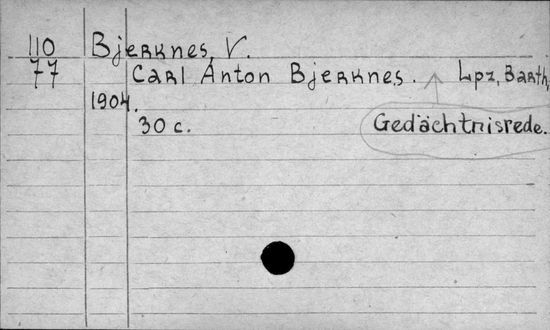 110 Bjerknes, V.
77 Carl Anton Bjerknes. Lpz, Barth,
1904.
30 c. Gedächtnisrede.